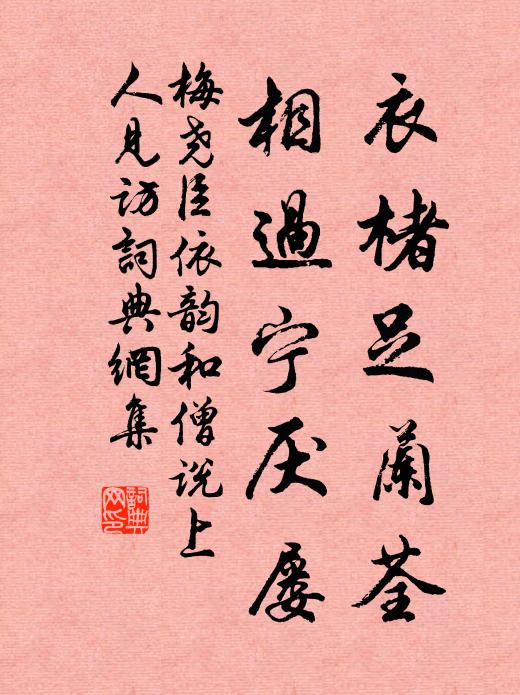 衣楮足蘭荃
相過宁厌屡
梅尧臣依韵和僧说上
人见访詞典網集
詞典网印